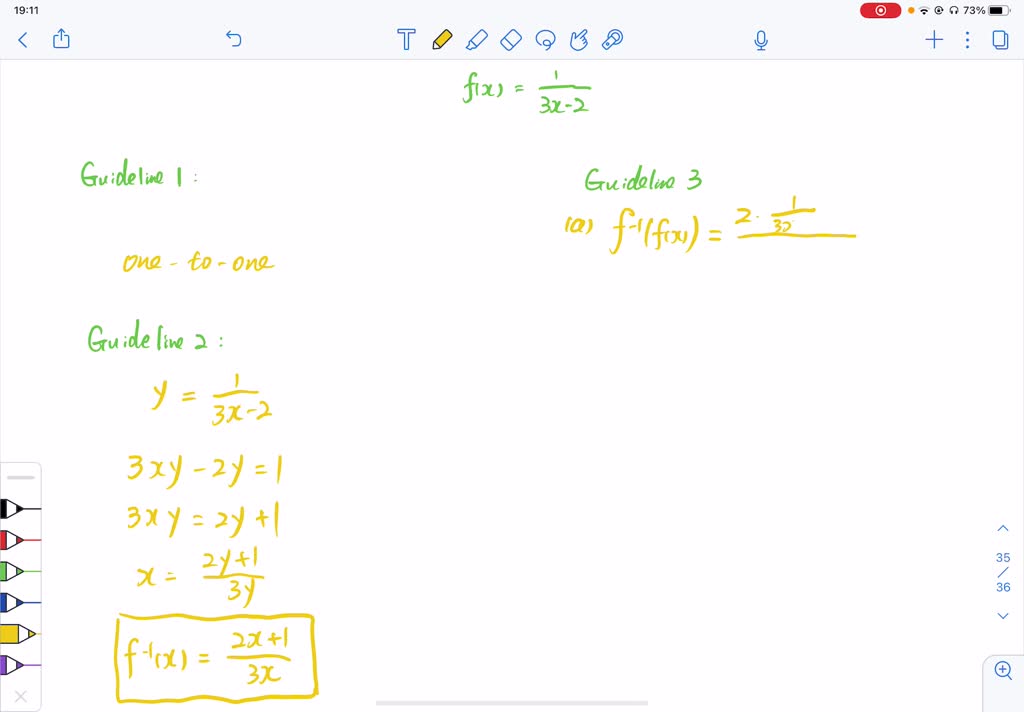 19:11
73%
f(x) = 1/(3x-2)
Guideline 1 :
one-to-one
Guideline 2 :
y = 1/(3x-2)
3xy - 2y = 1
3xy = 2y + 1
x = (2y+1)/(3y)
f⁻¹(x) = (2x+1)/(3x)
Guideline 3
(a) f⁻¹(f(x)) = 2 · 1/3x
35
/
36